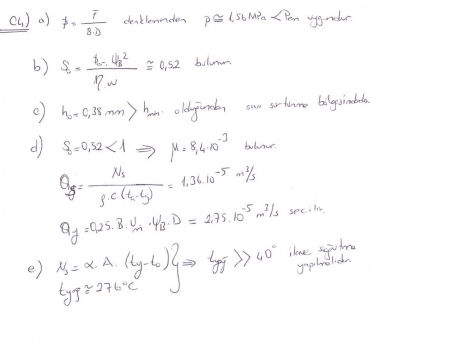 C4) a) p = F / B.D denkleminden p ≅ 1,56 MPa < Pem uygundur.
b) S₀ = pm.ψB² / η.w ≅ 0,52 bulunur.
c) h₀ = 0,38 mm > hmin olduğundan sıvı sürtünme bölgesindedir.
d) S₀ = 0,52 < 1 ⇒ μ = 8,4.10⁻³ bulunur.
Qs = Ns / ρ.c.(tç-tg) = 1,36.10⁻⁵ m³/s
Qy = 0,25.B.Um.ψB.D = 2,75.10⁻⁵ m³/s seçilir.
e) Ns = α.A.(ty-t₀) } ⇒ tyağ >> 40° ilave soğutma yapılmalıdır.
tyağ ≅ 276°C